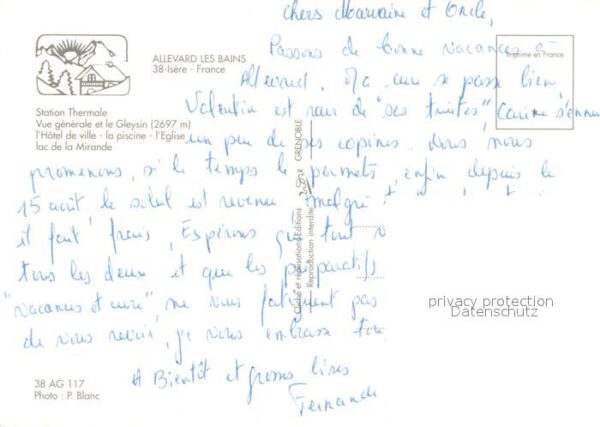 chers Marraine et Oncle,
Passons de bonne vacances à
Allevard. Ma cure se passe bien
Valentin est ravi de "ses truites", Carine s'ennuie
un peu de ses copines. Nous nous
promenons, si le temps le permets, enfin depuis le
15 août, le soleil est revenu malgré
il fait frais, Espérons que tout
tous les deux et que les préparatifs
"vacances et cure" ne vous fatiguent pas
de vous revoir, je vous embrasse
A Bientôt et grosses bises
Fernande
ALLEVARD LES BAINS
38-Isère - France
Station Thermale
Vue générale et le Gleysin (2697 m)
l'Hôtel de ville - la piscine - l'Eglise
lac de la Mirande
Imprimé en France
Cliché et réalisations Editions
GRENOBLE
Reproduction interdite
38 AG 117
Photo : P. Blanc
privacy protection
Datenschutz